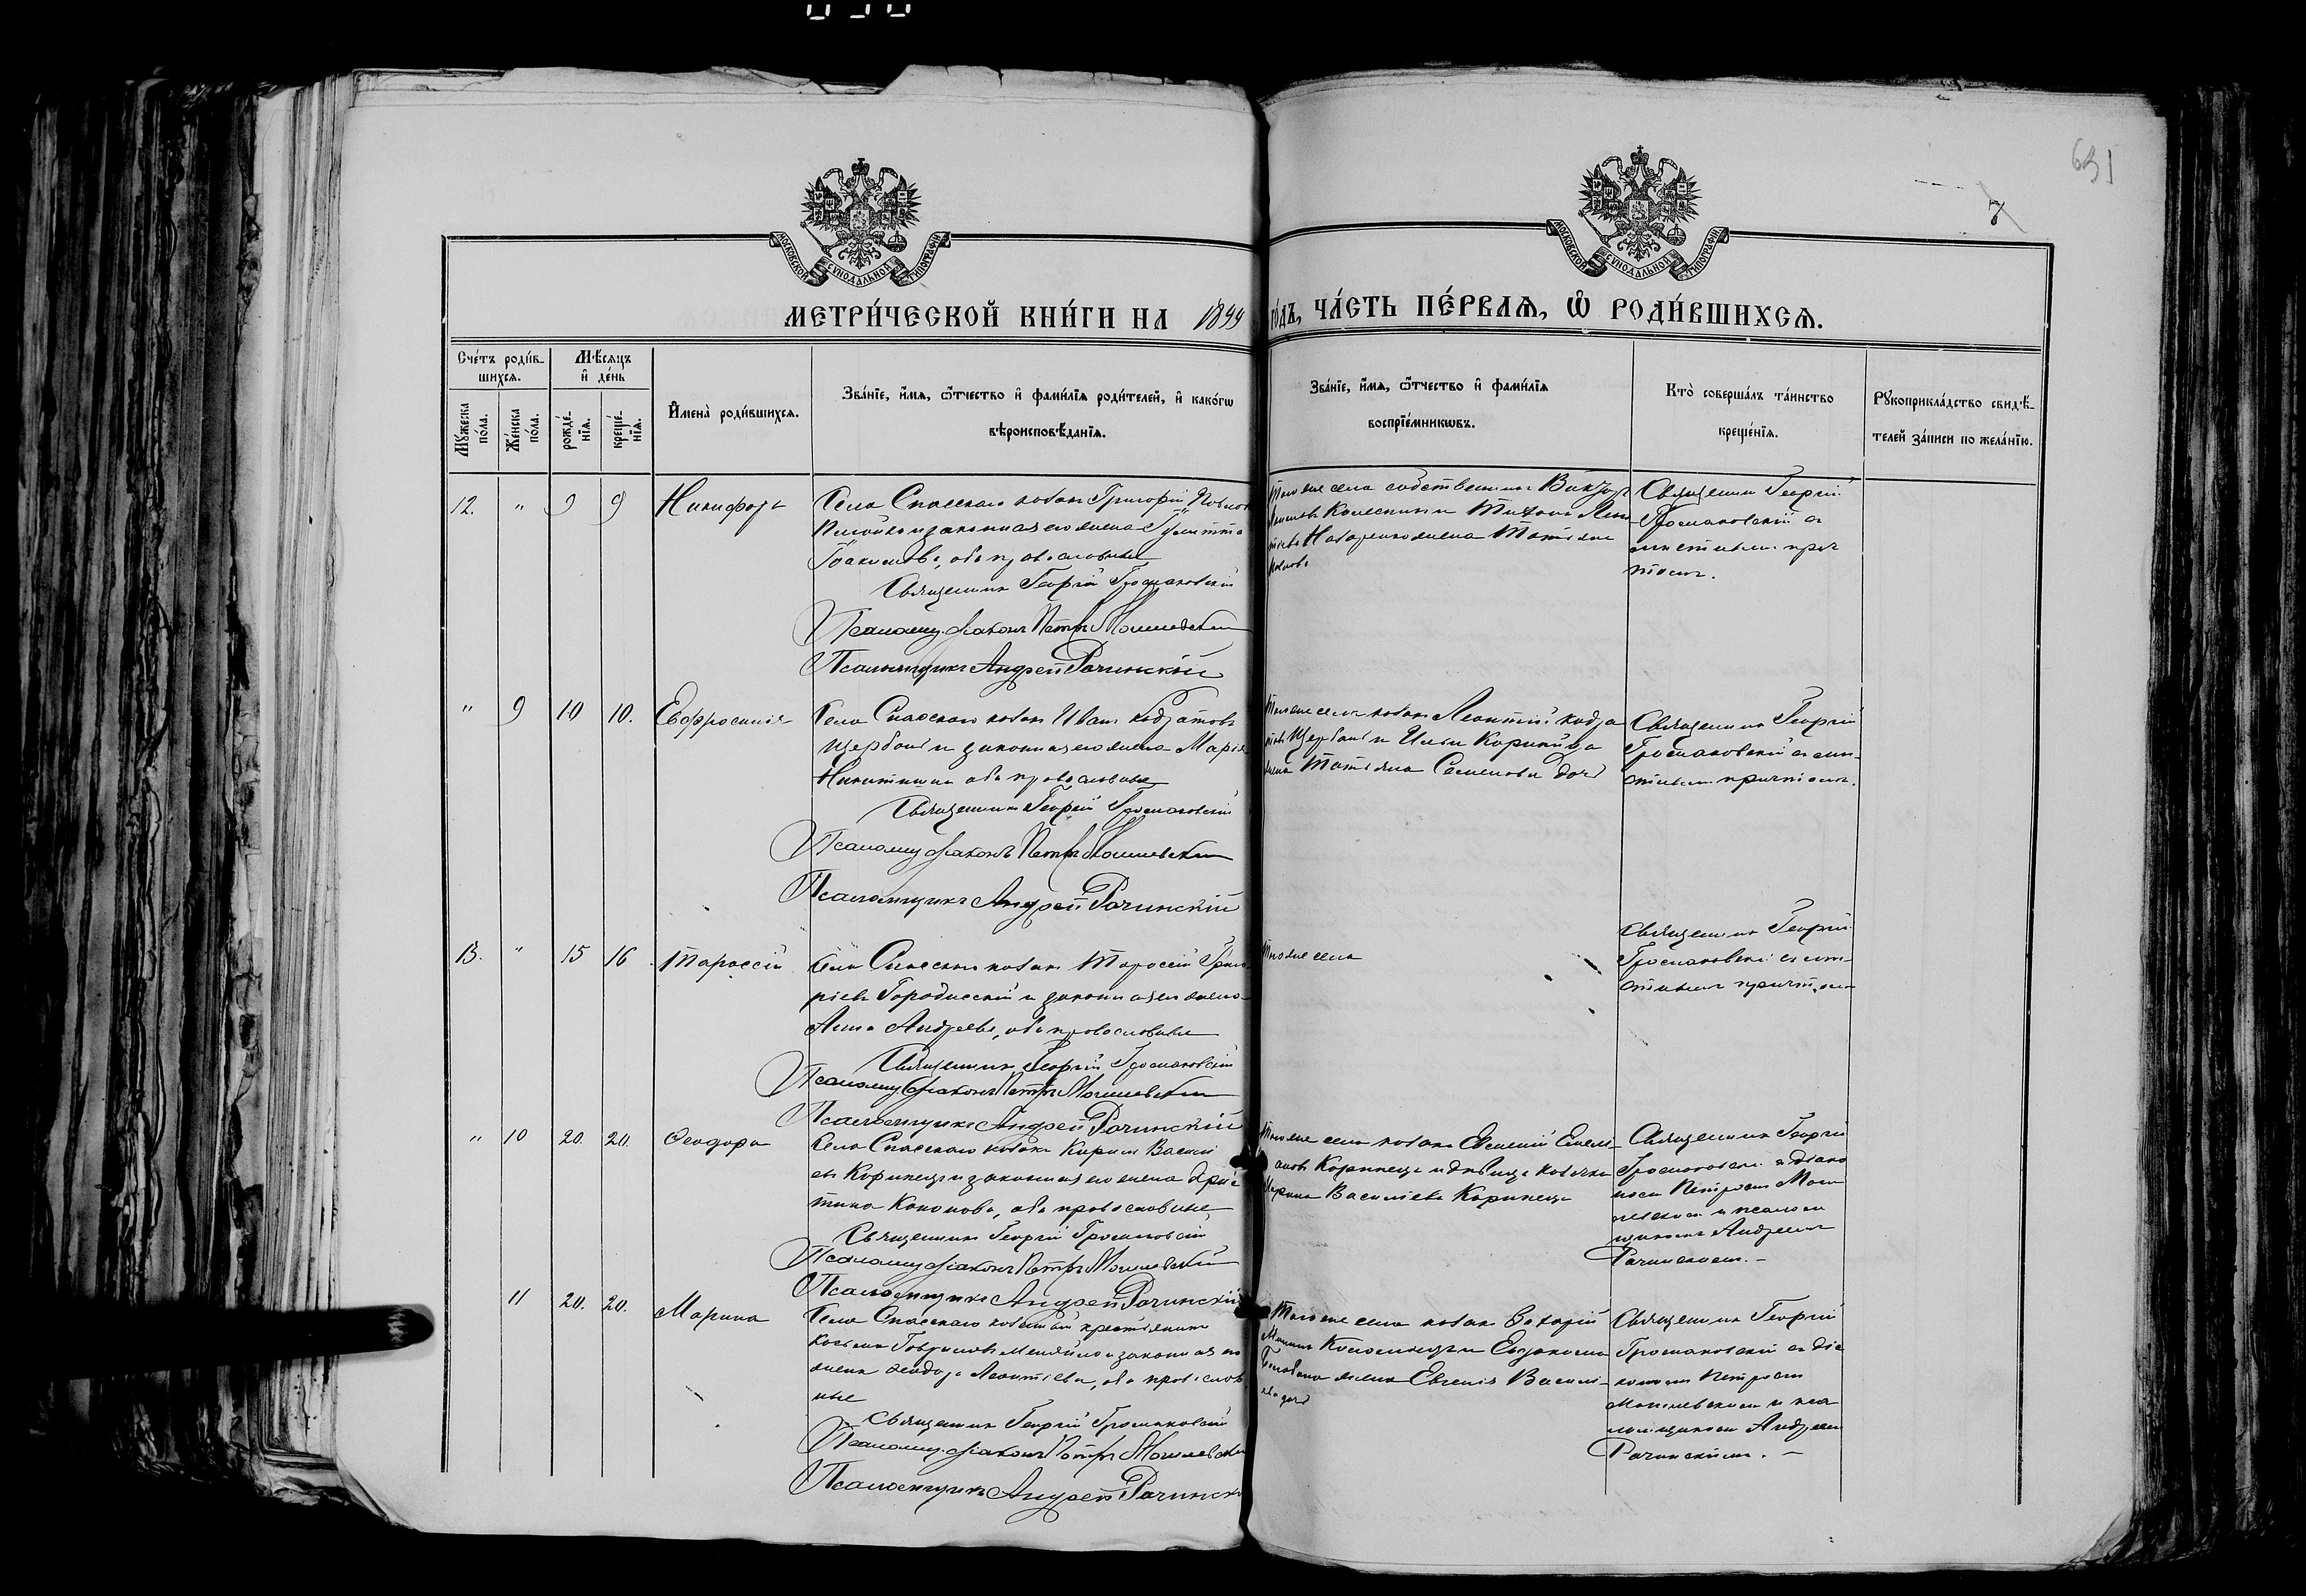 631
7
МОСКОВСКОЙ СѴНОДАЛЬНОЙ ТИПОГРАФІИ
МОСКОВСКОЙ СѴНОДАЛЬНОЙ ТИПОГРАФІИ
МЕТРИ́ЧЕСКОЙ КНИ́ГИ НА 1899 ГО́ДЪ, ЧА́СТЬ ПЕ́РВАѦ, Ѡ҆ РОДИ́ВШИХСѦ.
Сче́тъ роди́в-
шихсѧ.
Мѣ́сѧцъ
и҆ де́нь
Мꙋ́жеска
по́ла.
Же́нска
по́ла.
рожде́-
нїѧ.
креще́-
нїѧ.
И҆мена̀ роди́вшихсѧ.
Зва́нїе, и҆́мѧ, ѻ҆́тчество и҆ фами́лїѧ роди́телей, и҆ како́гѡ
вѣроисповѣ́данїѧ.
Зва́нїе, и҆́мѧ, ѻ҆́тчество и҆ фами́лїѧ
воспрїе́мникѡвъ.
Кто̀ соверша́лъ та́инство
креще́нїѧ.
Рꙋкоприкла́дство свидѣ́-
телей за́писи по жела́нїю.
12. " 9 9 Никифоръ
Села Спасскаго козакъ Григорій
и законная его жена
оба православные
Священникъ Георгій Громаковскій
Псаломщ. діаконъ Петръ Могилевскій
Псаломщикъ Андрей Рачинскій
Того же села собственникъ Викторъ
жена Татіана
Священникъ Георгій
Громаковскій съ
мѣстнымъ прич
томъ.
" 9 10 10. Евфросинія
Села Спасскаго козакъ Иванъ Кодратовъ
Щербань и законная его жена Марія
Никитина оба православные
Священникъ Георгій Громаковскій
Псаломщ діаконъ Петръ Могилевскій
Псаломщикъ Андрей Рачинскій
Того же села козакъ Леонтій Кодра
товъ Щербань и Ильи Коринца
жена Татіана Семенова дочь
Священникъ Георгій
Громаковскій съ мѣ-
стнымъ причтомъ.
13. " 15 16 Тарассій
Села Спасскаго козакъ Тарасій Григо
ріевъ Городисскій и законная его жена
Анна Андреева, оба православные
Священникъ Георгій Громаковскій
Псаломщ. діаконъ Петръ Могилевскій
Псаломщикъ Андрей Рачинскій
Того же села
Священникъ Георгій
Громаковскій съ мѣ-
стнымъ причтомъ
" 10 20. 20. Ѳеодора
Села Спасскаго козакъ Кирилъ Василі
евъ Коринецъ и законная его жена Хрис
тина Кононова, оба православные
Священникъ Георгій Громаковскій
Псаломщ діаконъ Петръ Могилевскій
Псаломщикъ Андрей Рачинскій
Того же села козакъ Евсевій Емели
ановъ Коринецъ и дѣвица козачка
Марина Василіева Коринецъ
Священникъ Георгій
Громаковскій съ діако
номъ Петромъ Моги
левскимъ и псалом
щикомъ Андреемъ
Рачинскимъ. –
11 20. 20. Марина
Села Спасскаго крестьянинъ
Косьма Гавриловъ и законная его
жена Ѳеодора Леонтіева, оба православ
ные
Священникъ Георгій Громаковскій
Псаломщ. діаконъ Петръ Могилевскій
Псаломщикъ Андрей Рачинскій
Того же села козакъ Захарій
жена Евгенія Василі
ева дочь
Священникъ Георгій
Громаковскій съ діа
кономъ Петромъ
Могилевскимъ и пса
ломщикомъ Андреемъ
Рачинскимъ. –